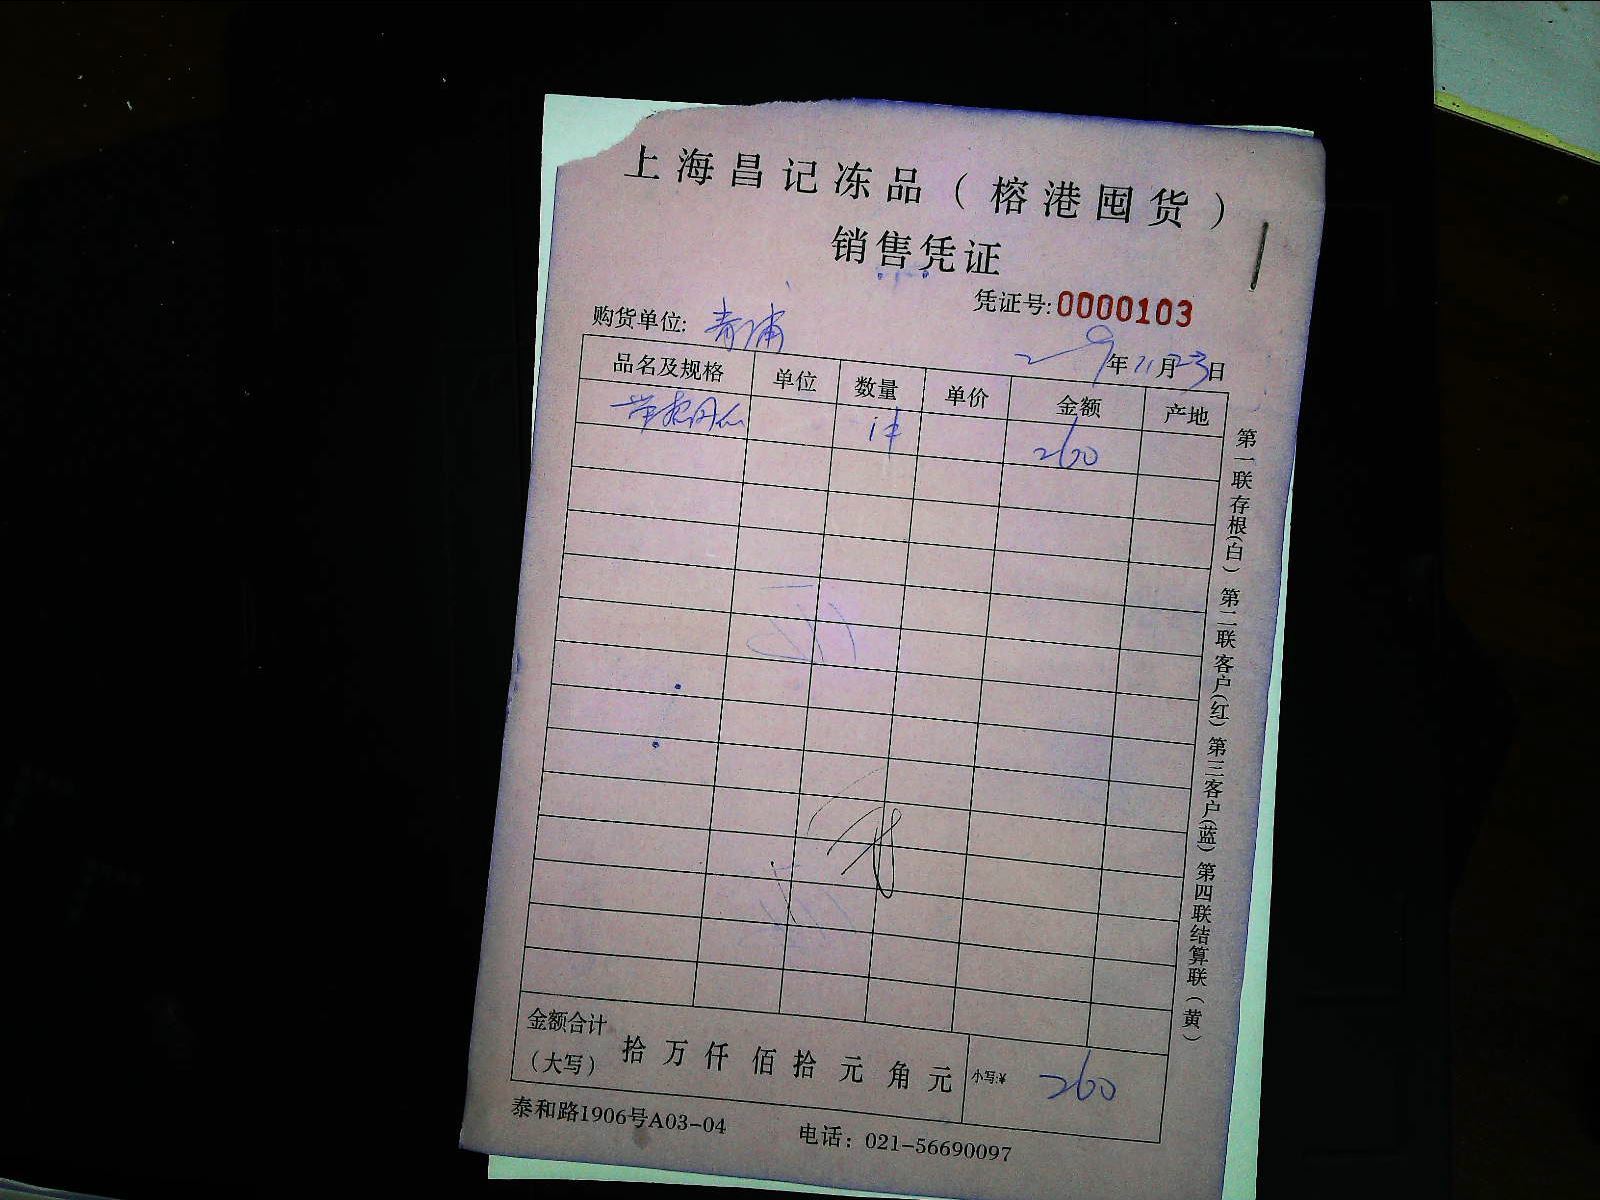 上海昌记冻品（榕港囤货）
销售凭证
凭证号:0000103
购货单位: 青浦
年11月23日
品名及规格 单位 数量 单价 金额 产地
1件 260
金额合计（大写） 拾 万 仟 佰 拾 元 角 元 小写:¥ 260
泰和路1906号A03-04 电话：021-56690097
第一联存根(白) 第二联客户(红) 第三客户(蓝) 第四联结算联(黄)